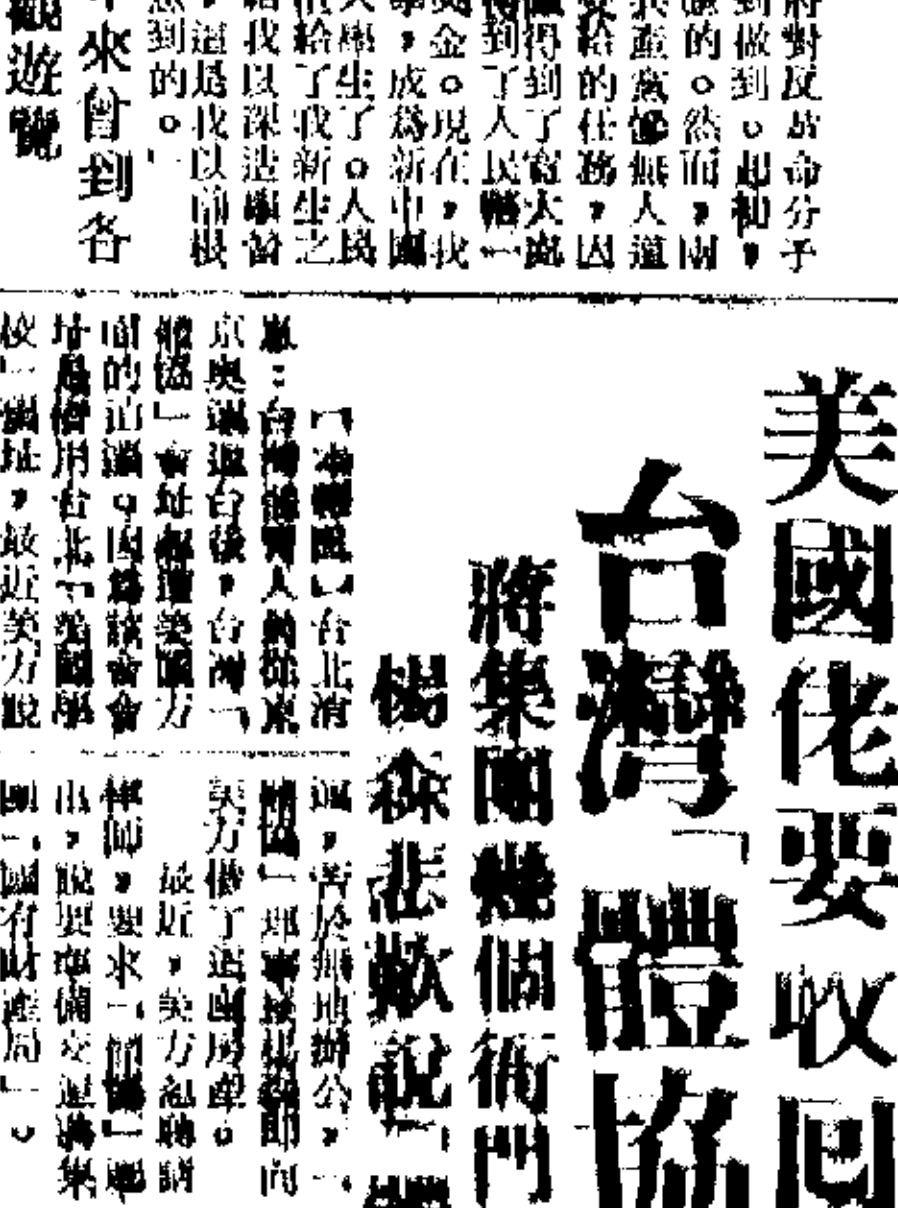 對反革命分子
到做到。起初，
的。然而，國
無人道
給的任務，因
得到了寬大處
到了人民幣一
金。現在，我
，成爲新中國
大學生了。人民
給了我新生之
給我以深造學習
，這是我以前根
到的。」
來曾到各
遊覽
美國佬要收回
台灣「體協
將集團幾個衙門
楊森悲歎說「
【本報訊】台北消
息：台灣體育人員從東
京奧運返台後，台灣「
體協」會址却遭美國方
面的追討。因爲該會會
址是借用台北「美國學
校」舊址，最近美方說
，苦於無地辦公，「
體協」理事長楊森即向
美方借了這幢房產。
最近，美方忽聘請
律師，要求「體協」遷
出，說要準備交還蔣集
團「國有財產局」。